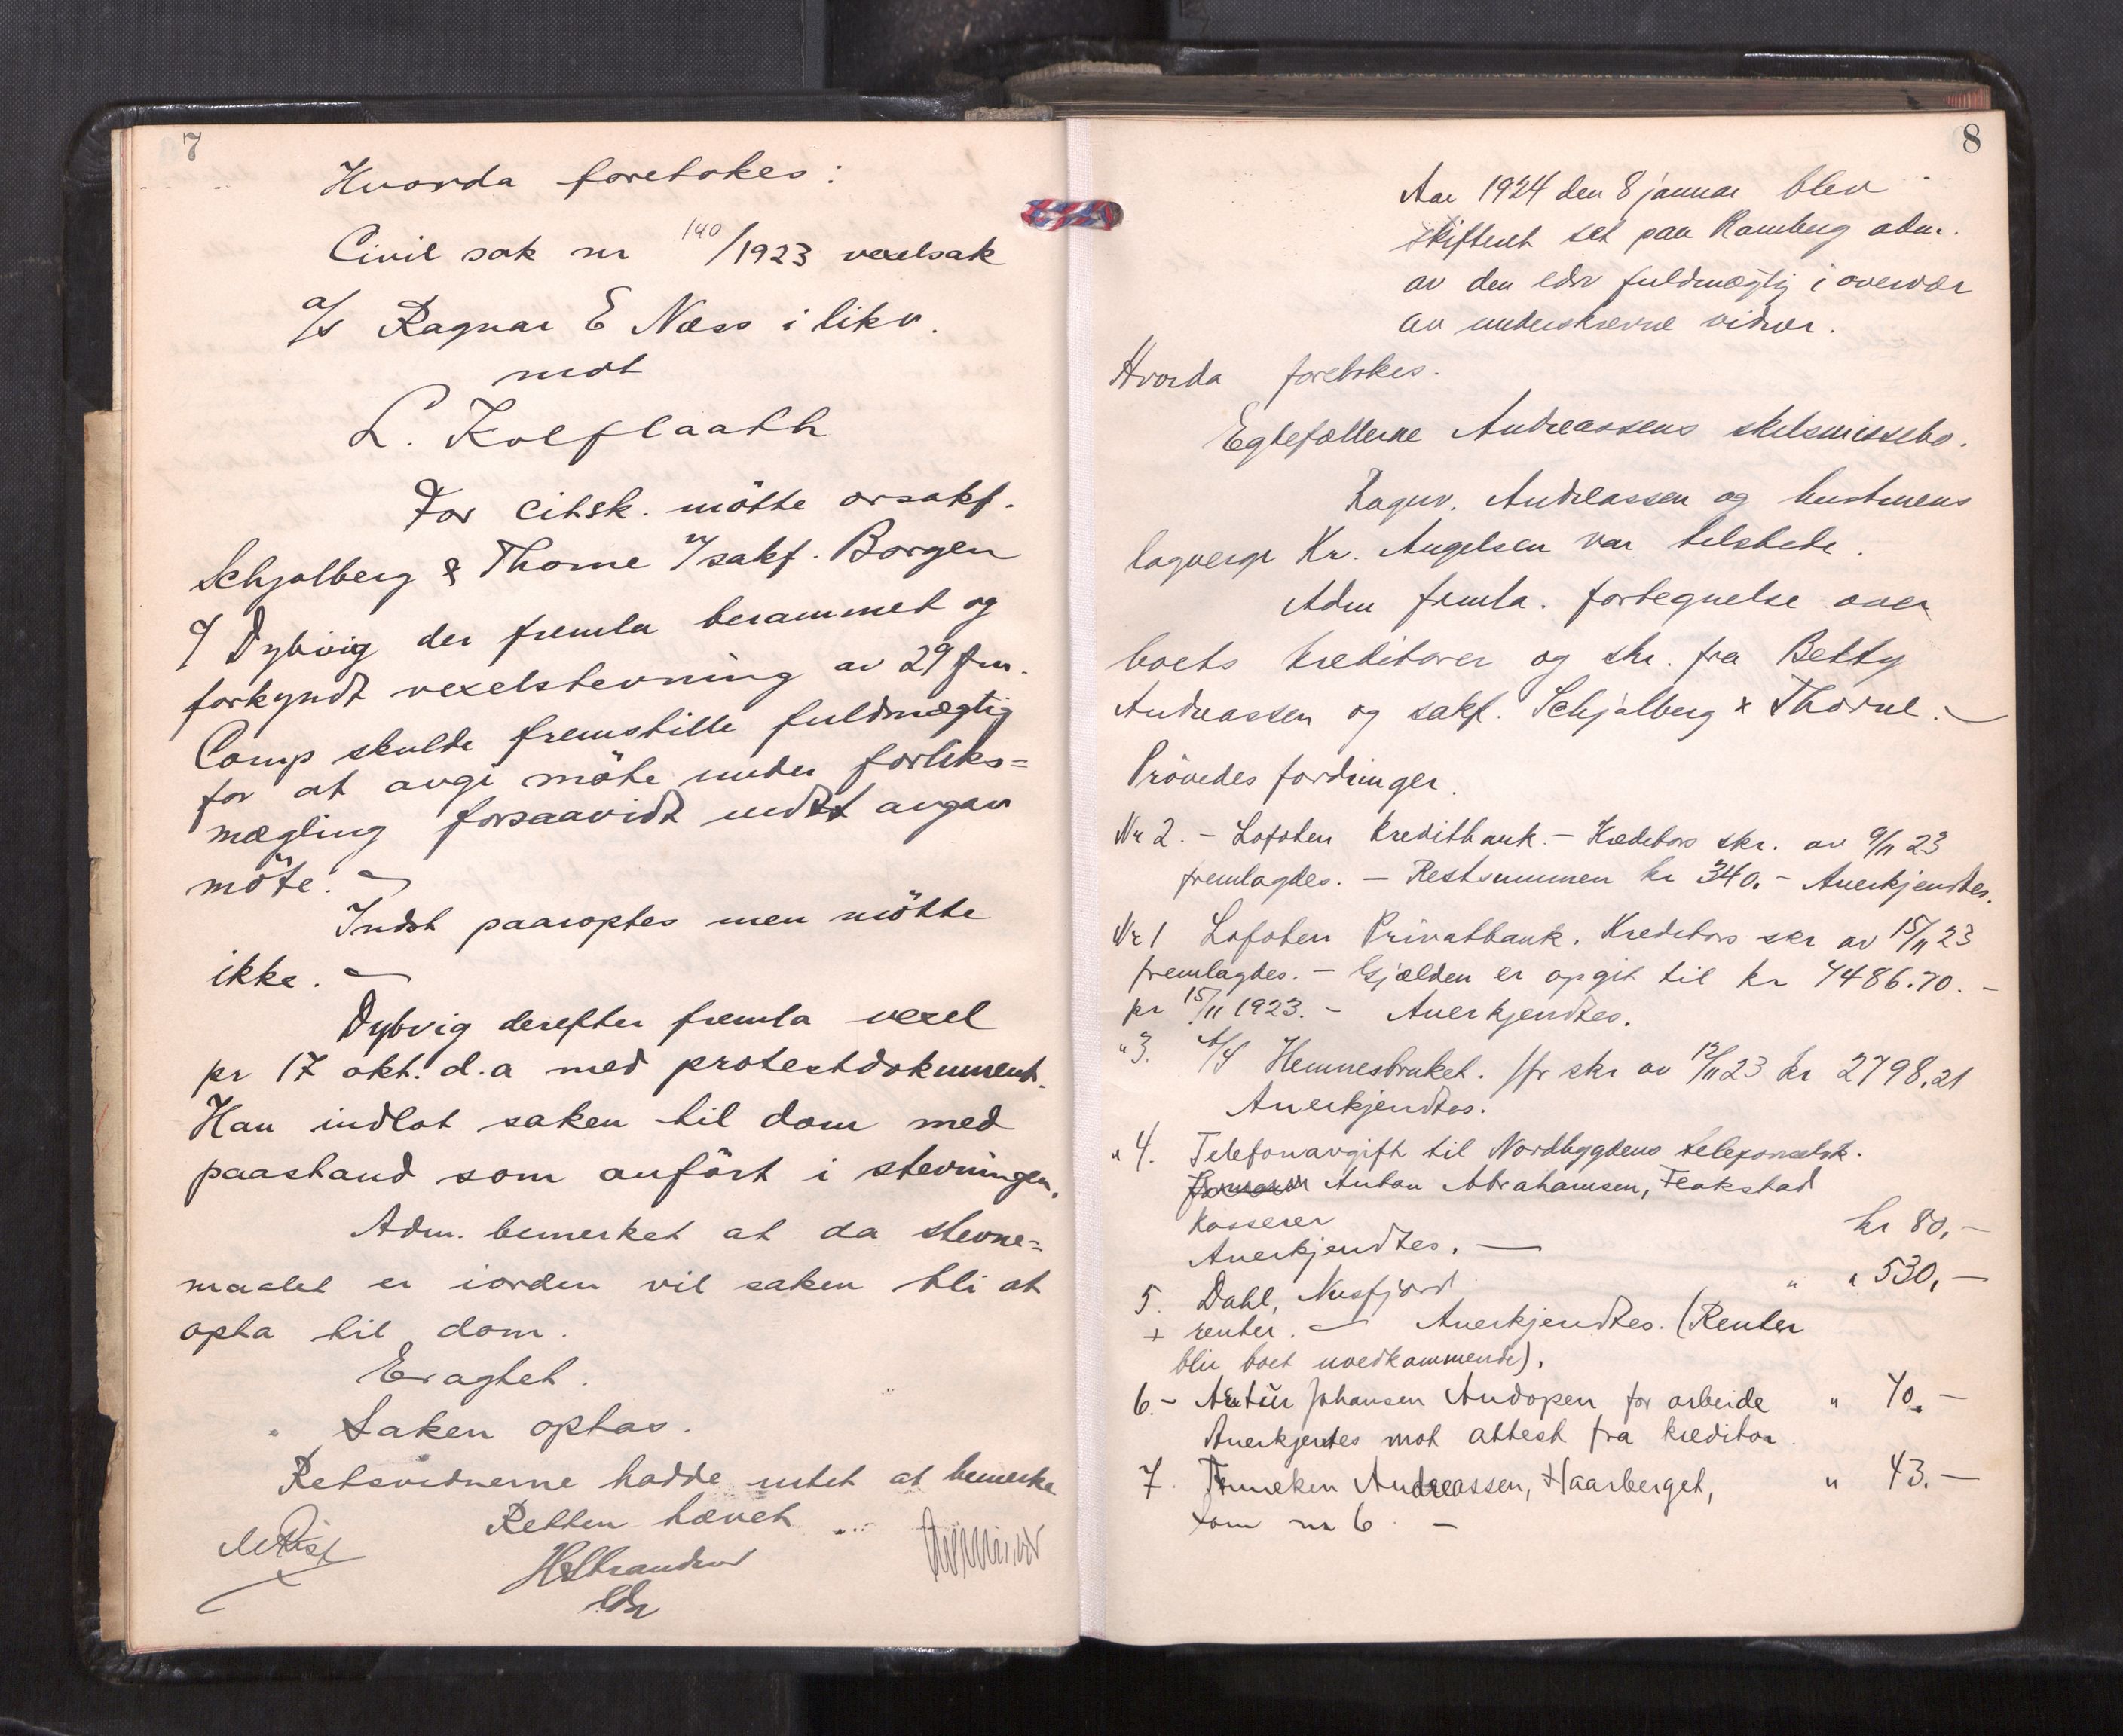 7
Hvorda foretokes:
Civil sak nr 140/1923 vexelsak
a/s Ragnar E Næss i likv.
mot
L. Kolflaath
For citsk. mötte orsakf.
Schjølberg & Thorne v/sakf. Borgen
o/ Dybvig der fremla berammet og
forkyndt vexelstevning av 29 f.m.
Comp skulde fremstille fuldmægtig
for at avgi möte under forliks=
mægling forsaavidt indst avgav
möte.
Indst paaroptes men mötte
ikke.
Dybvig derefter fremla vexel
pr 17 okt. d.a med protestdokument.
Han indlot saken til dom med
paastand som anfört i stevningen.
Adm. bemerket at da stevne=
maalet er iorden vil saken bli at
opta til dom.
Eragtet.
Saken optas.
Retsvidnerne hadde intet at bemerke
Retten hævet
HStrandrud
edsv
8
Aar 1924 den 8 januar blev
skifteret set paa Ramberg adm.
av den edsv fuldmægtig i overvær
av underskrevne vidner.
Hvorda foretokes.
Egtefællerne Andreassens skilsmissebo.
Ragnv. Andreassen og hustruens
lagverge Kr. Angelsen var tilstede.
Adm fremla. fortegnelse over
boets kreditorer og skr. fra Betty
Andreassen og sakf. Schjølberg & Thorne.
Prövedes fordringer.
Nr 2. - Lofoten Kreditbank. - Kreditors skr. av 9/11 23
fremlagdes. - Restsummen kr 340. - Anerkjendtes.
Nr 1 Lofoten Privatbank. Kreditors skr av 15/11 23
fremlagdes. - Gjælden er opgit til kr 7486.70. -
pr 15/11 1923. - Anerkjendtes.
" 3. A/S Hemnesbruket. Ifr skr av 12/11 23 kr 2798,21
Anerkjendtes.
" 4. Telefonavgift til Nordbygdens telefonselsk.
Anton Abrahamsen, Flakstad
kasserer kr 80,-
Anerkjendtes. -
5. Dahl, Nusfjord " " 530,-
+ renter. - Anerkjendtes. (Renter
blir boet uvedkommende).
6. - Artur Johansen Andopen for arbeide " 70. -
Anerkjendtes mot attest fra kreditor.
7. Andreassen, Haarberget, " 43. -
som nr 6. -